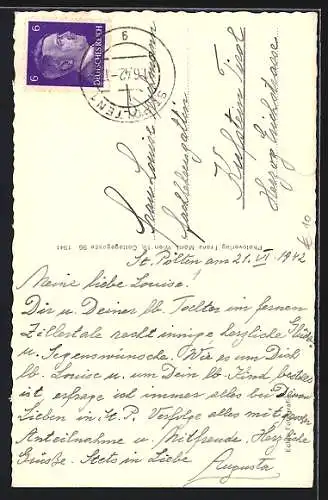 St. Pölten am 21. VI. 1942
Meine liebe Louise!
Dir u. Deiner lb. Tochter im fernen
Zillertale innige herzliche
u. Segenswünsche. Wie es um Dich
lb. Louise u. um Dein lb. Kind
ist, erfrage ich immer alles bei Deinen
Lieben in St. P. Verfolge alles mit
Anteilnahme u. Mitfreude. Herzliche
Grüße. Stets in Liebe
Augusta
Frau Louise
Kufstein Tirol
Photoverlag Franz Mörtl, Wien 19, Cottagegasse 56 1941
DEUTSCHES REICH
6 6
ST. PÖLTEN 1
9